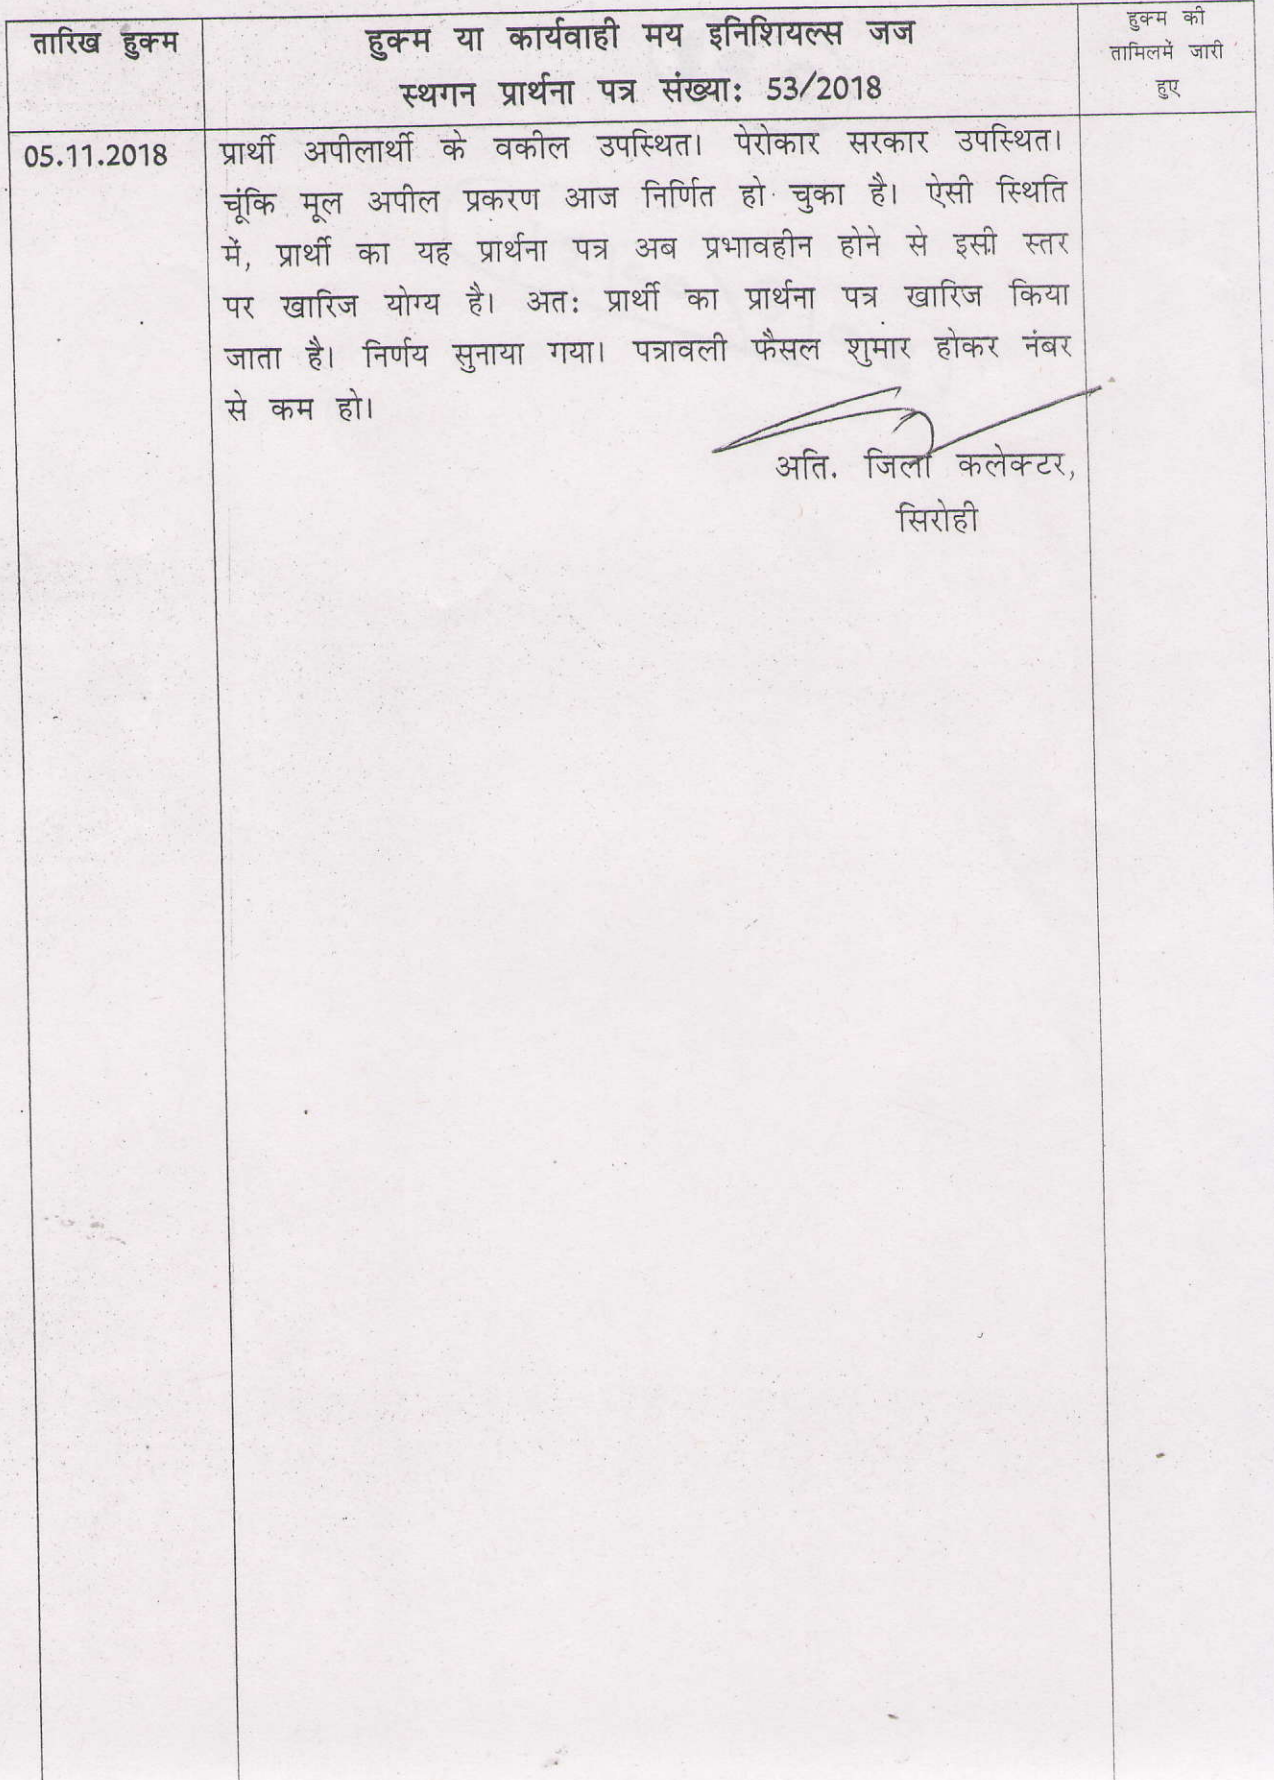 तारिख हुक्म
हुक्म या कार्यवाही मय इनिशियल्स जज
स्थगन प्रार्थना पत्र संख्या: 53/2018
हुक्म की
तामिलमें जारी
हुए
05.11.2018
प्रार्थी अपीलार्थी के वकील उपस्थित। पेरोकार सरकार उपस्थित।
चूंकि मूल अपील प्रकरण आज निर्णित हो चुका है। ऐसी स्थिति
में, प्रार्थी का यह प्रार्थना पत्र अब प्रभावहीन होने से इसी स्तर
पर खारिज योग्य है। अत: प्रार्थी का प्रार्थना पत्र खारिज किया
जाता है। निर्णय सुनाया गया। पत्रावली फैसल शुमार होकर नंबर
से कम हो।
अति. जिला कलेक्टर,
सिरोही